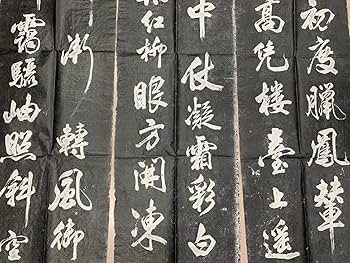 初度臘鳳輦
高凭樓臺上遥
中仗凝霜彩白
紅柳眼方開凍
漸轉風御
靄驪岫照斜空